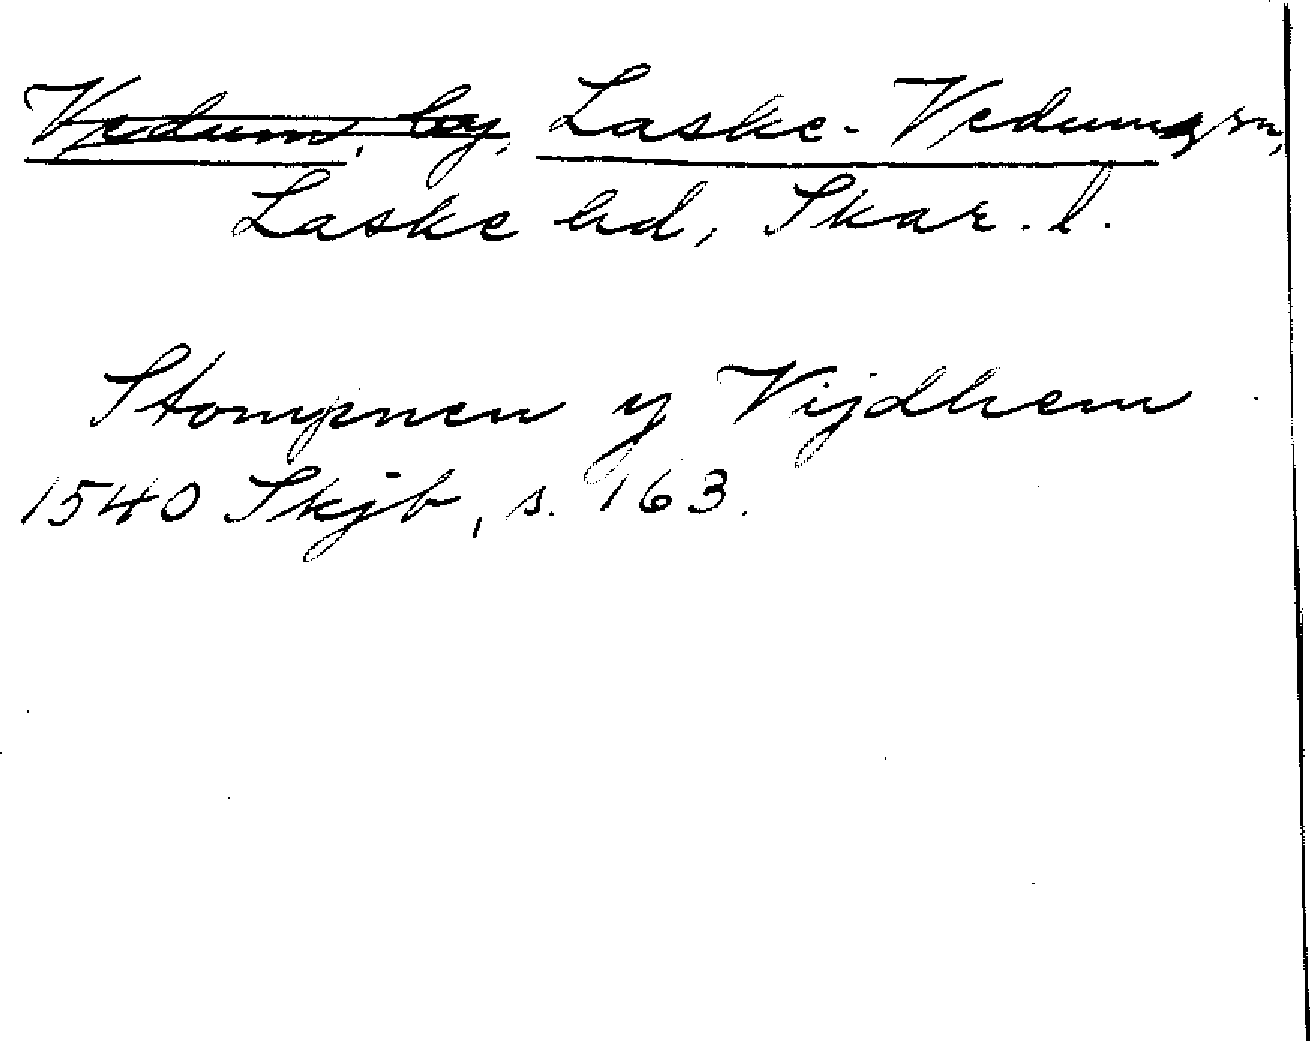 Vedum, by, Laske-Vedum sn,
Laske hd, Skar. l.
Stompnen y Vijdhem
1540 Skjb, s. 163.